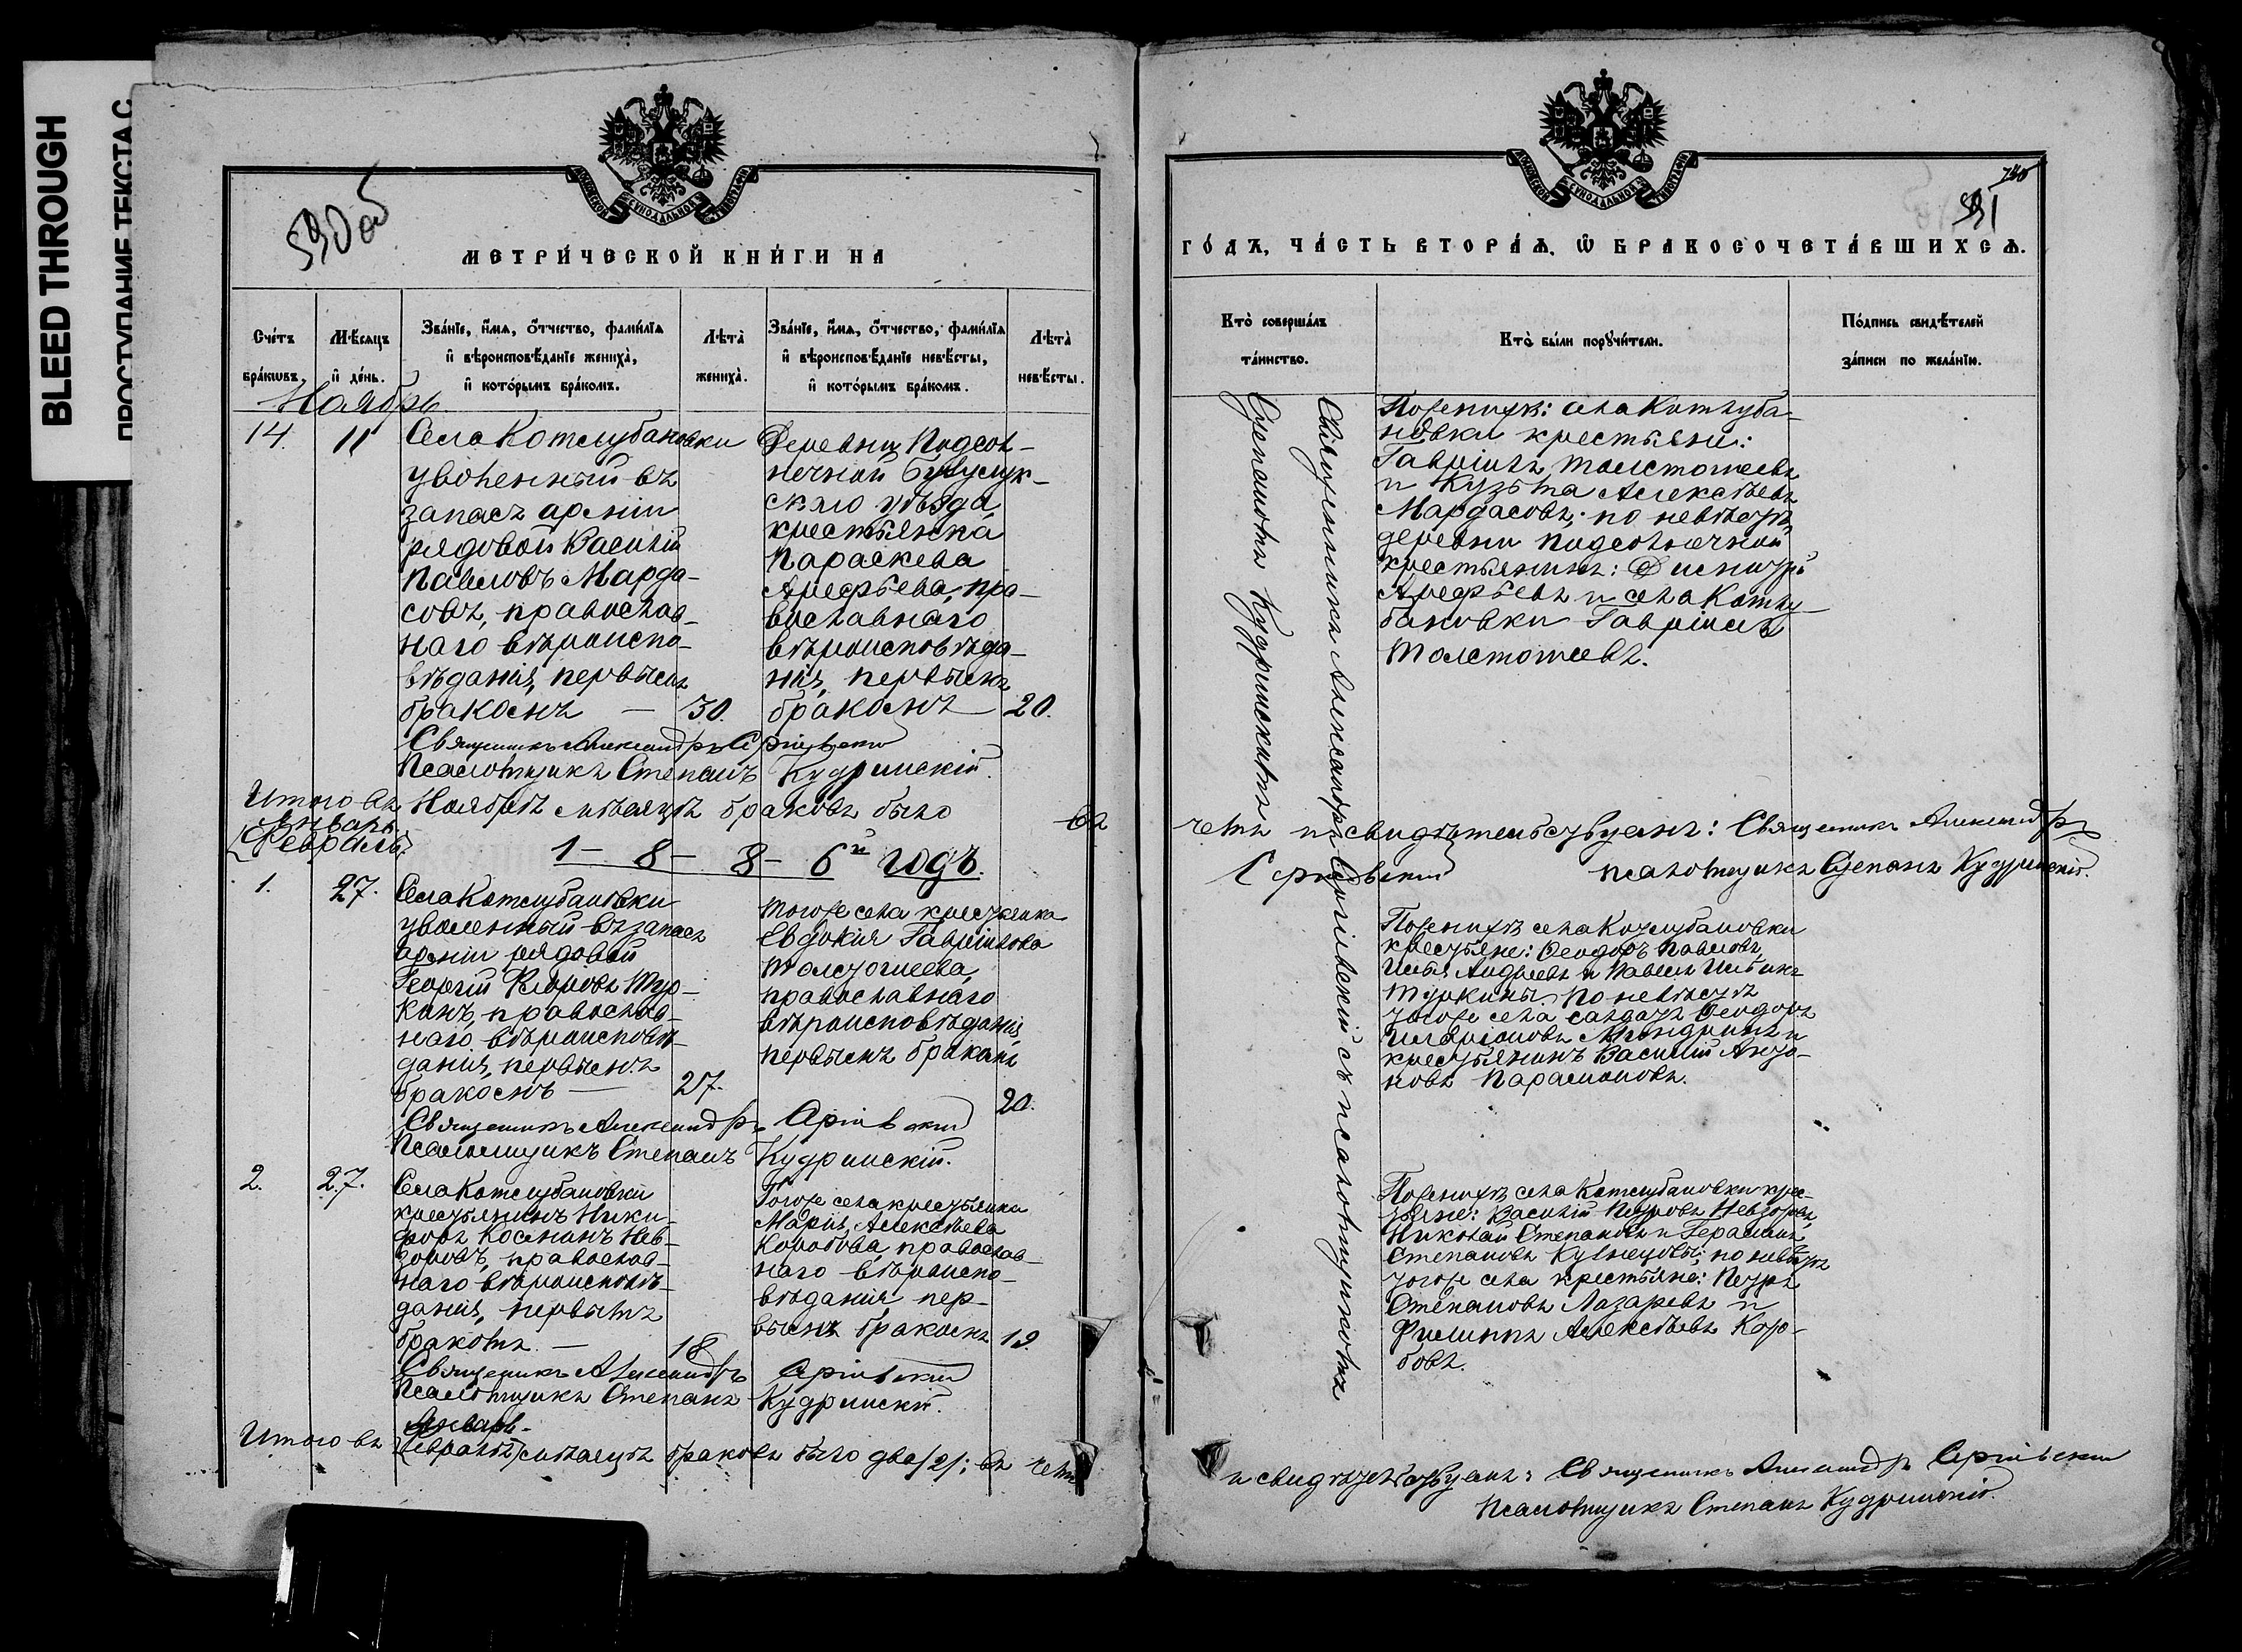 BLEED THROUGH
590 об
МЕТРИ́ЧЕСКОЙ КНИ́ГИ НА
Сче́тъ бра́кωвъ.
Мѣ́сяцъ и҆ де́нь.
Зва́нїе, и҆́мѧ, ѻ҆́тчество, фами́лїѧ и҆ вѣроисповѣ́данїе жениха̀, и҆ кото́рымъ бра́комъ.
Лѣта̀ жениха̀.
Зва́нїе, и҆́мѧ, ѻ҆́тчество, фами́лїѧ и҆ вѣроисповѣ́данїе невѣ́сты, и҆ кото́рымъ бра́комъ.
Лѣта̀ невѣ́сты.
Ноябрь
14.
11
Села Котлубановки
уволенный въ
запасъ арміи
рядовой Василій
Павловъ Марда-
совъ, православ-
наго вѣроиспо-
вѣданія, первымъ
бракомъ —
30.
Деревни Подсол-
нечной Бузулук-
скаго уѣзда,
крестьянка
Параскева
Арефьева, пра-
вославнаго
вѣроисповѣда-
нія, первымъ
бракомъ —
20.
Священникъ Александръ Сергіевскій
Псаломщикъ Степанъ Кудринскій.
Итого въ Ноябрѣ мѣсяцѣ браковъ было
Январь
[Февраль]
1 – 8 – 8 – 6й годъ.
1.
27.
Села Котлубановки
уволенный въ запасъ
арміи рядовой
Георгій Тур-
кинъ, православ-
наго вѣроисповѣ-
данія, первымъ
бракомъ —
27.
Тогоже села крестьянка
Евдокія Гавріилова
Толстошеева,
православнаго
вѣроисповѣданія,
первымъ бракомъ
20.
Священникъ Александръ Сергіевскій
Псаломщикъ Степанъ Кудринскій.
2.
27.
Села Котлубановки
крестьянинъ Ники-
форъ Косминъ Нев-
зоровъ, православ-
наго вѣроисповѣ-
данія, первымъ
бракомъ. —
18
Тогоже села крестьянка
Марія Алексѣева
Коробова, православ-
наго вѣроиспо-
вѣданія, пер-
вымъ бракомъ
19.
Священникъ Александръ Сергіевскій
Псаломщикъ Степанъ Кудринскій.
Январѣ
Итого въ [Февралѣ] мѣсяцѣ браковъ было два /2/; въ чемъ
591
ГО́ДЪ, ЧА́СТЬ ВТОРА́Ѧ, Ѡ БРАКОСОЧЕТА́ВШИХСѦ.
Кто̀ соверша́лъ та́инство.
Кто̀ бы́ли порꙋчи́тели.
По́дпись свидѣ́телей за́писи по жела́нїю.
Священникъ Александръ Сергіевскій съ псаломщикомъ
Степаномъ Кудринскимъ
По женихѣ: села Котлуба-
новки крестьяни:
Гавріилъ Толстошеевъ
и Кузьма Алексѣевъ
Мардасовъ; по невѣстѣ
деревни Подсолнечной
крестьянинъ:
Арефьевъ и села Котлу-
бановки Гавріилъ
Толстошеевъ.
чемъ и свидѣтельствуемъ: Священникъ Александръ
Сергіевскій
псаломщикъ Степанъ Кудринскій.
По женихѣ села Котлубановки
крестьяне: Ѳеодоръ Павловъ,
Илья Андреевъ и Павелъ Ильинъ
Туркины. По невѣстѣ
тогоже села солдатъ Ѳеодоръ
Иларіоновъ и
крестьянинъ Василій Анто-
новъ Парамоновъ.
По женихѣ села Котлубановки крес-
тьяне: Василій Петровъ Невзоровъ,
Николай Степановъ и Герасимъ
Степановъ Кузнецовы; по невѣстѣ
тогоже села крестьяне: Петръ
Степановъ Лазаревъ и
Филиппъ Алексѣевъ Коро-
бовъ.
и свидѣтельствуемъ: Священникъ Александръ Сергіевскій
Псаломщикъ Степанъ Кудринскій.